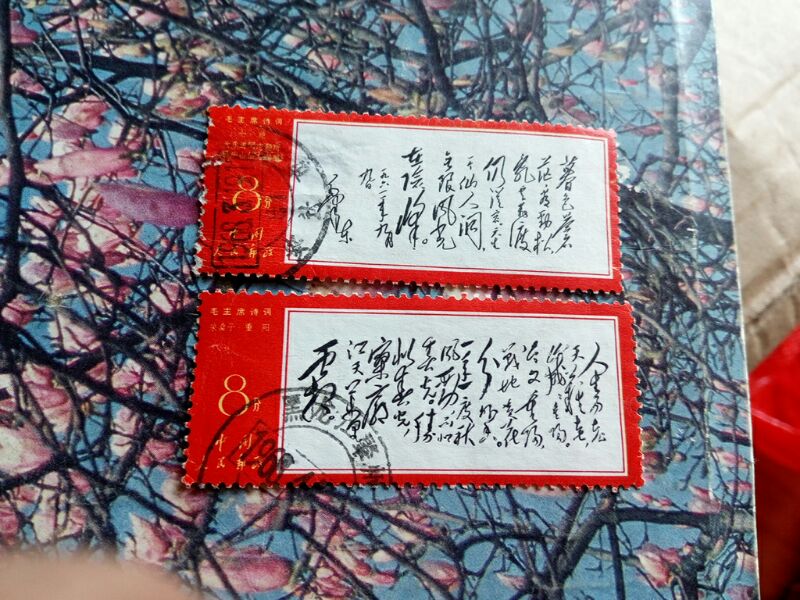 毛主席诗词
8分
中国
人民邮政
暮色苍
茫看劲松,
乱云飞渡
无限风光
在险峰。
一九六一年九月
九日
毛泽东
毛主席诗词
采桑子 重阳
8分
中国
人民邮政
人生易老
天难老,
岁岁重阳。
今又重阳,
战地黄花
分外香。
一年一度秋
风劲,不似
春光,胜
似春光,
寥廓
江天万里
霜
1968